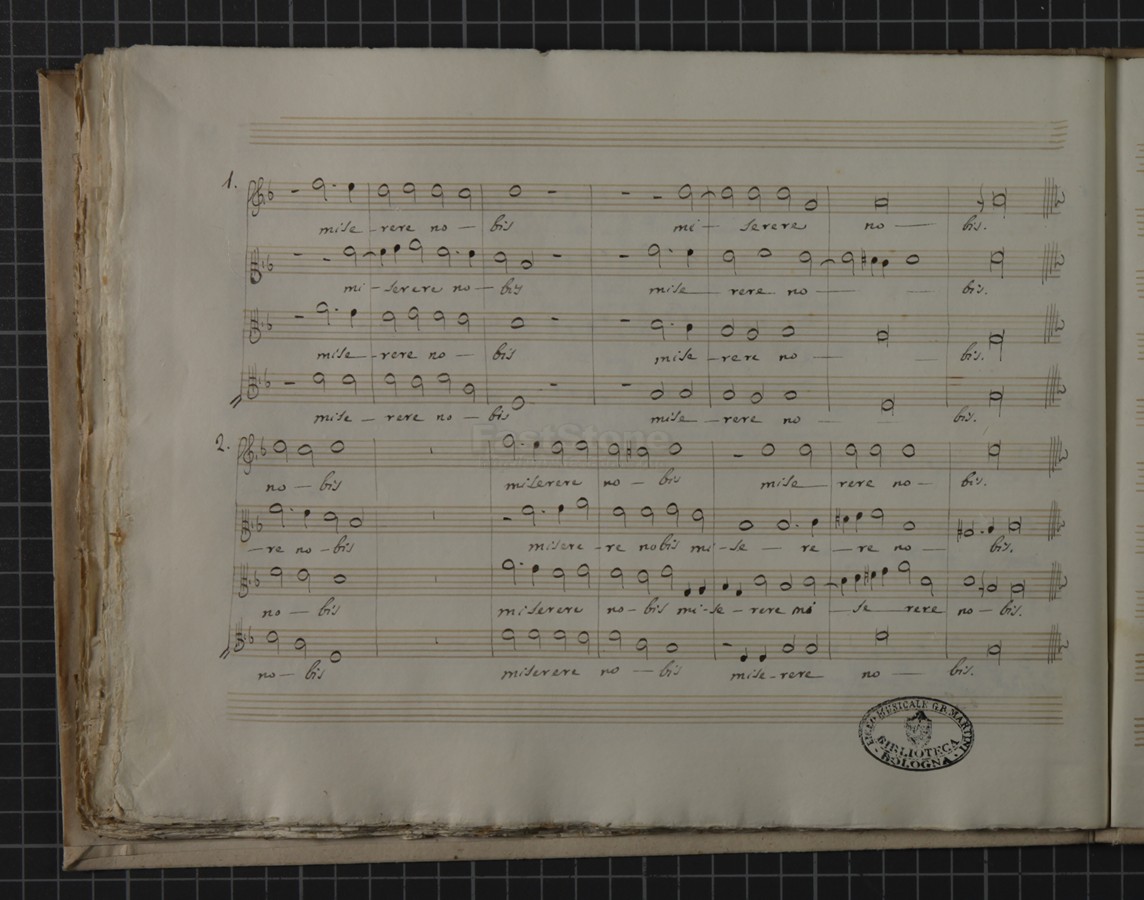 1.
mise - rere no - bis mi - serere no - bis.
mi - serere no - bis mise - rere no - bis.
mise - rere no - bis mise - rere no - bis.
mise - rere no - bis mise - rere no - bis.
2.
no - bis miserere no - bis mise - rere no - bis.
- re no - bis misere - re nobis mi - se - re - re no - bis.
no - bis miserere no - bis mi - se - rere mi - se - rere no - bis.
no - bis miserere no - bis mise - rere no - bis.
FastStone
MUSICALE G.B. MARTINI
BIBLIOTECA
BOLOGNA